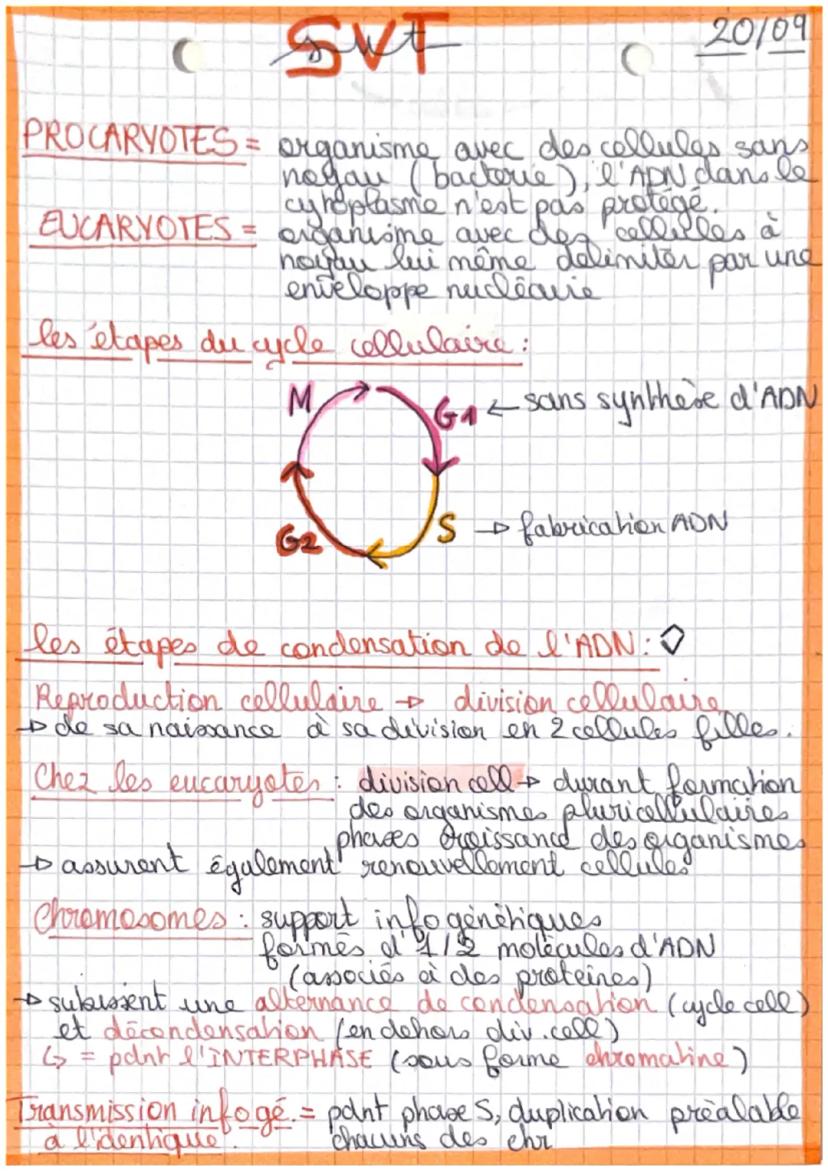 SVT
20/09
PROCARYOTES = organisme avec des cellules sans
noyau (bactérie), l'ADN dans le
cytoplasme n'est pas protégé.
EUCARYOTES = organisme avec des cellules à
noyau lui même délimiter par une
enveloppe nucléaire
les étapes du cycle cellulaire :
M
G1 ← sans synthèse d'ADN
G2
S → fabrication ADN
les étapes de condensation de l'ADN :
Reproduction cellulaire → division cellulaire
→ de sa naissance à sa division en 2 cellules filles.
Chez les eucaryotes : division cell → durant formation
des organismes pluricellulaires
phases croissance des organismes
→ assurent également renouvellement cellules
Chromosomes : support info génétiques
formés d'1/2 molécules d'ADN
(associés à des proteines)
→ subissent une alternance de condensation (cycle cell)
et décondensation (en dehors div.cell)
↳ = pdnt l'INTERPHASE (sous forme chromatine)
Transmission info gé. = pdnt phase S, duplication préalable
à l'identique. chacuns des chr